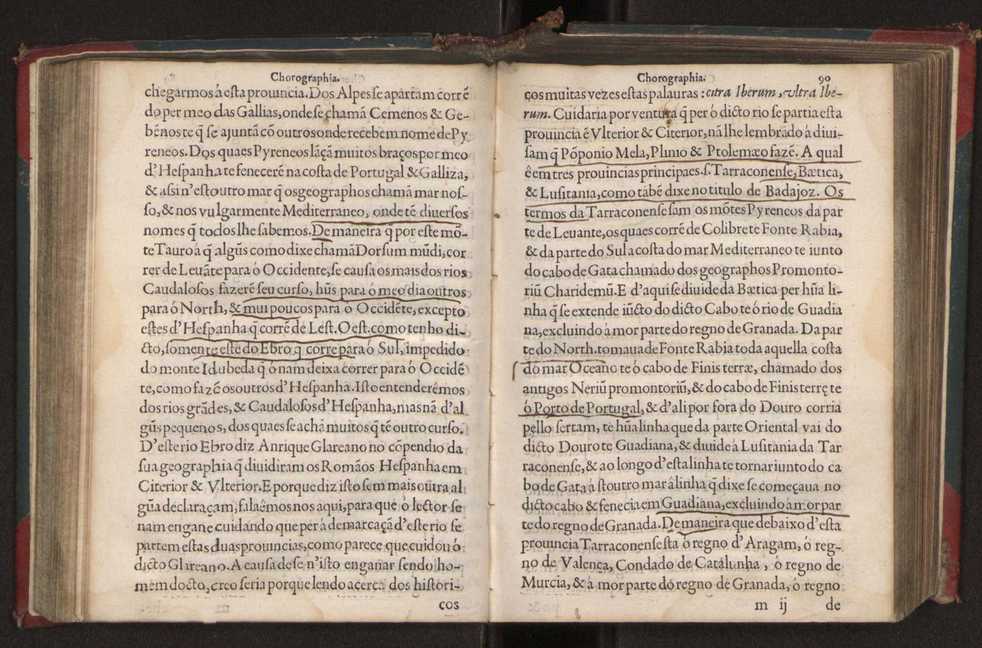 Chorographia.
chegarmos á esta prouincia. Dos Alpes se apartam corrẽ
do per meo das Gallias, onde se chamã Cemenos & Ge-
bẽnos te q̃ se ajuntã cõ outros onde recebem nome de Py
reneos. Dos quaes Pyreneos lãçã muitos braços por meo
d'Hespanha te fenecerẽ na costa de Portugal & Galliza,
& assi n'estoutro mar q̃ os geographos chamã mar nos-
so, & nos vulgarmente Mediterraneo, onde tẽ diuersos
nomes q̃ todos lhe sabemos. De maneira q̃ por este mõ-
te Tauro á q̃ algũs como dixe chamã Dorsum mũdi, cor
rer de Leuãte para ó Occidente, se causa os mais dos rios
Caudalosos fazerẽ seu curso, hũs para ó meo dia outros
para ó North, & mui poucos para o Occidẽte, excepto
estes d'Hespanha q̃ corrẽ de Lest. Oest. como tenho di-
cto, somente este do Ebro q̃ corre para ó Sul, impedido
do monte Idubeda q̃ ó nam deixa correr para ó Occidẽ
te, como fazẽ os outros d'Hespanha. Isto entenderẽmos
dos rios grãdes, & Caudalosos d'Hespanha, mas nã d'al
gũs pequenos, dos quaes se achã muitos q̃ tẽ outro curso.
D'este rio Ebro diz Anrique Glareano no cõpendio da
sua geographia q̃ diuidiram os Romãos Hespanha em
Citerior & Vlterior. E porque diz isto sem mais outra al
gũa declaraçam, falaẽmos nos aqui, para que ó lector se
nam engane cuidando que per à demarcaçã d'este rio se
partem estas duas prouincias, como parece que cuidou ó
dicto Glareano. A causa de se n'isto enganar sendo ho-
mem docto, creo seria porque lendo acerca dos histori-
cos
Chorographia. 90
cos muitas vezes estas palauras: citra Iberum, vltra Ibe-
rum. Cuidaria por ventura q̃ per ó dicto rio se partia esta
prouincia ẽ Vlterior & Citerior, nã lhe lembrãdo à diui-
sam q̃ Põponio Mela, Plinio & Ptolemæo fazẽ. A qual
ẽ em tres prouincias principaes. s. Tarraconense, Bætica,
& Lusitania, como tãbẽ dixe no titulo de Badajoz. Os
termos da Tarraconense sam os mõtes Pyreneos da par
te de Leuante, os quaes corrẽ de Colibre te Fonte Rabia,
& da parte do Sul a costa do mar Mediterraneo te iunto
do cabo de Gata chamado dos geographos Promonto-
riũ Charidemũ. E d'aqui se diuide da Bætica per hũa li-
nha q̃ se extende iũcto do dicto Cabo te ó rio de Guadia
na, excluindo à mor parte do regno de Granada. Da par
te do North. tomaua de Fonte Rabia toda aquella costa
do mar Oceano te ó cabo de Finis terræ, chamado dos
antigos Neriũ promontoriũ, & do cabo de Finis terrę te
ó Porto de Portugal, & d'ali por fora do Douro corria
pello sertam, te hũa linha que da parte Oriental vai do
dicto Douro te Guadiana, & diuide à Lusitania da Tar
raconense, & ao longo d'esta linha te tornar iunto do ca
bo de Gata á stoutro mar á linha q̃ dixe se começaua no
dicto cabo & fenecia em Guadiana, excluindo à mor par
te do regno de Granada. De maneira que debaixo d'esta
prouincia Tarraconense sta ó regno d'Aragam, ó reg-
no de Valença, Condado de Catalunha, ó regno de
Murcia, & à mor parte do regno de Granada, ó regno
m ij de